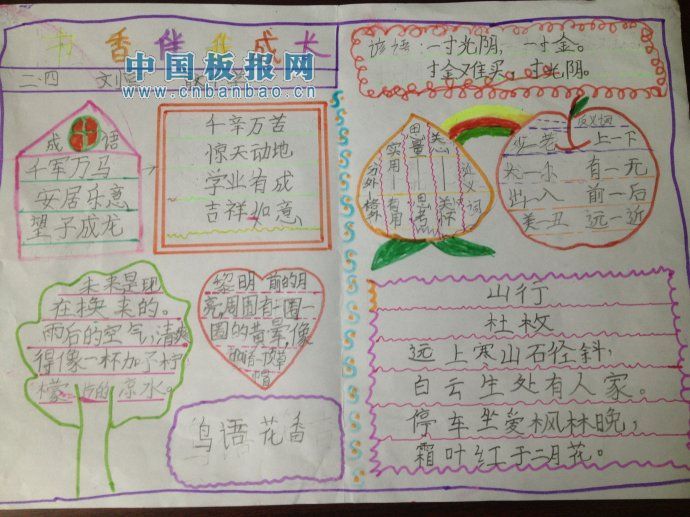 书香伴我成长
二.四
中国板报网
www.cnbanbao.cn
成语
千军万马
安居乐意
望子成龙
千辛万苦
惊天动地
学业有成
吉祥如意
谚语：一寸光阴，一寸金。
寸金难买，寸光阴。
近义词
关心——关怀
思量——思考
实用——有用
分外 格外
反义词
少—老 上—下
大—小 有—无
出—入 前—后
美—丑 远—近
未来是现
在换来的。
雨后的空气，清爽
得像一杯加了柠
檬片的凉水。
黎明前的月
亮，周围有一圈一
圈的黄晕，像
帽
鸟语花香
山行
杜牧
远上寒山石径斜，
白云生处有人家。
停车坐爱枫林晚，
霜叶红于二月花。